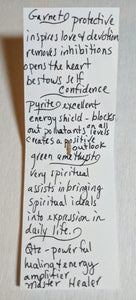 Garnet protective
inspires love & devotion
removes inhibitions
opens the heart
bestows self
confidence
Pyrite excellent
energy shield - blocks
out pollutants on all levels
creates a positive
outlook
green amethyst
very spiritual
assists in bringing
spiritual ideals
into expression in
daily life.
Qtz - powerful
healing & energy
amplifier
master Healer